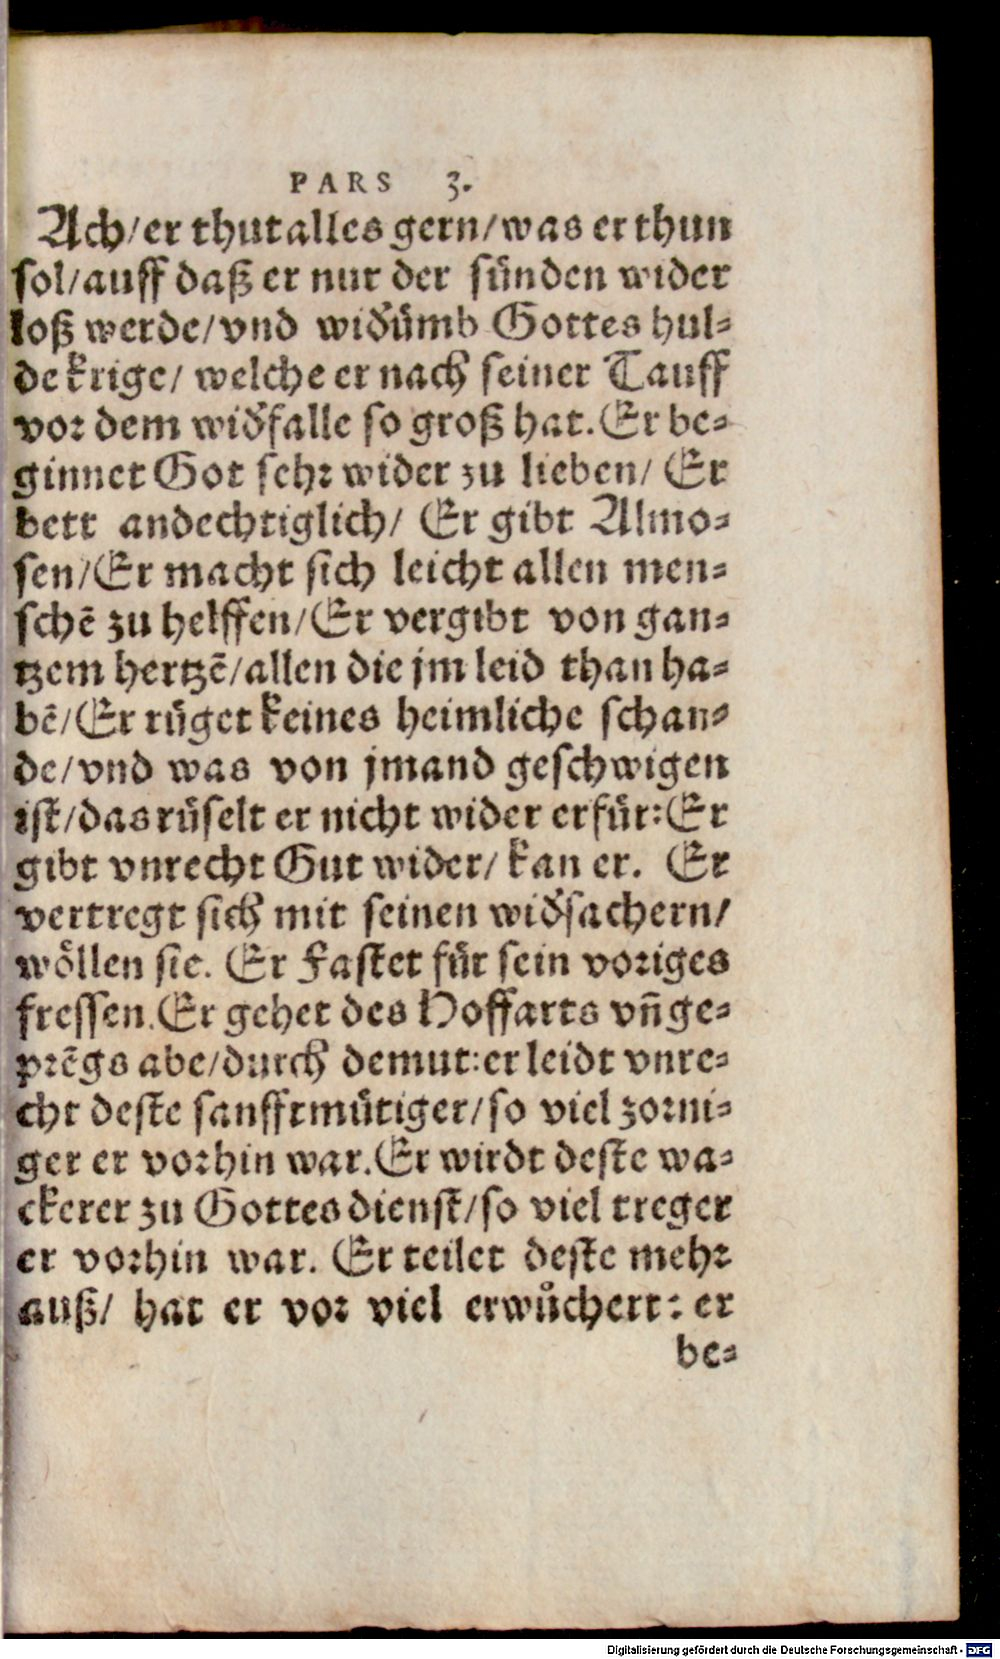 PARS 3.
Ach/er thut alles gern/was er thun
sol/auff daß er nur der sünden wider
loß werde/vnd wid̃ümb Gottes hul-
de krige/ welche er nach seiner Tauff
vor dem wid̃falle so groß hat. Er be-
ginnet Got sehr wider zu lieben/ Er
bett andechtiglich/ Er gibt Almo-
sen/Er macht sich leicht allen men-
schē zu helffen/Er vergibt von gan-
tzem hertzē/allen die jm leid than ha-
bē/Er rüget keines heimliche schan-
de/vnd was von jmand geschwigen
ist/das rüselt er nicht wider erfür: Er
gibt vnrecht Gut wider/ kan er. Er
vertregt sich mit seinen wid̃sachern/
wöllen sie. Er Fastet für sein voriges
fressen. Er gehet des Hoffarts vn̄ ge-
prēgs abe/durch demut: er leidt vnre-
cht deste sanfftmütiger/so viel zorni-
ger er vorhin war. Er wirdt deste wa-
ckerer zu Gottes dienst/so viel treger
er vorhin war. Er teilet deste mehr
auß/ hat er vor viel erwůchert: er
be-
Digitalisierung gefördert durch die Deutsche Forschungsgemeinschaft - DFG